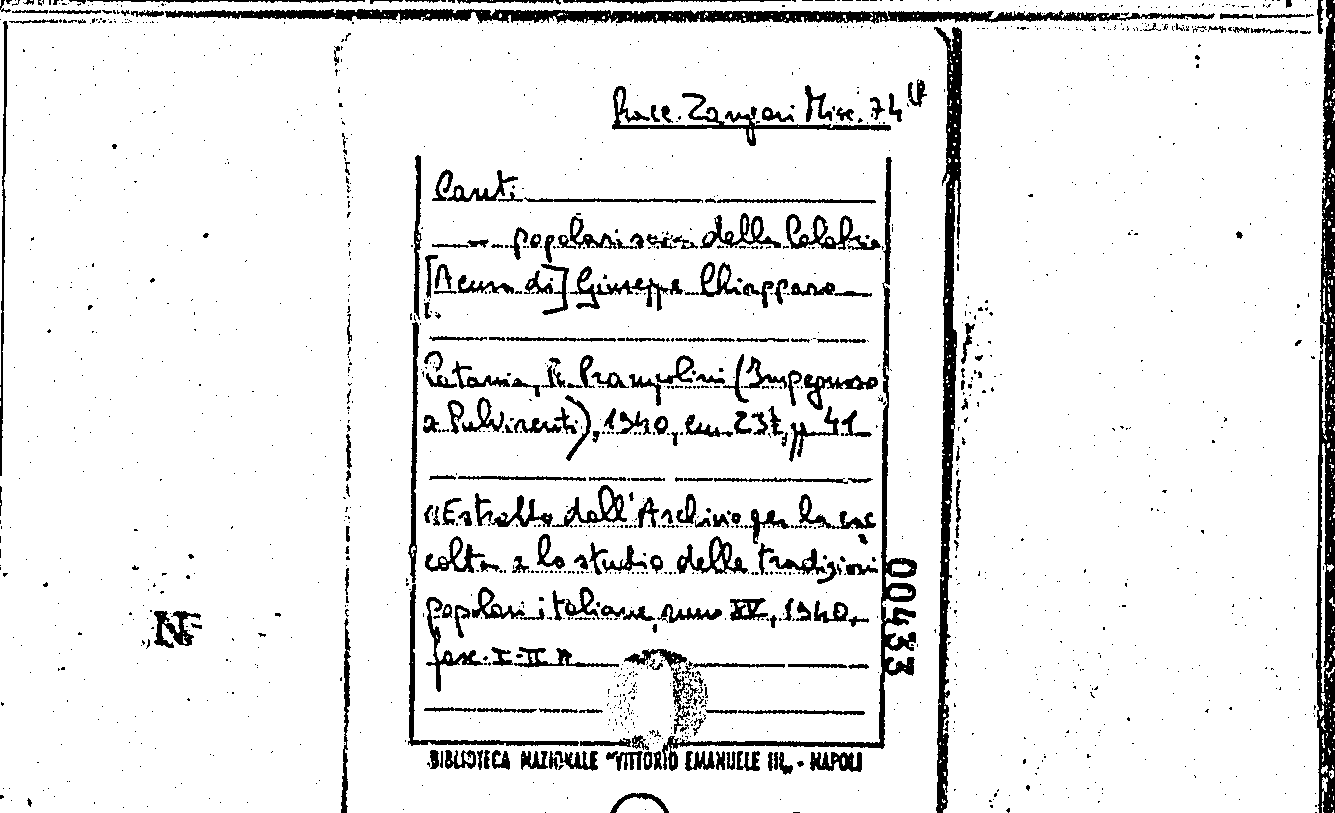 Racc. Zangari Misc. 74
Canti
popolari sacri della Calabria
[A cura di] Giuseppe Chiapparo
Catania, R. Prampolini (Impegnoso
e Pulvirenti), 1940, cm. 23½, pp 41
«Estratto dall'Archivio per la rac
colta e lo studio delle tradizioni
popolari italiane, anno XV, 1940,
fasc. I-II
00433
NF
BIBLIOTECA NAZIONALE "VITTORIO EMANUELE III„ - NAPOLI